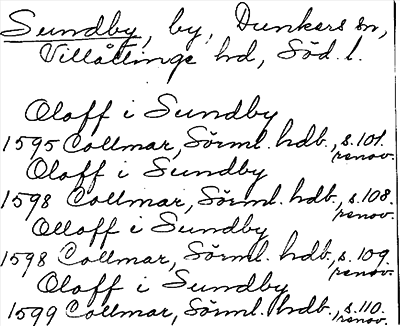 Sundby, by, Dunkers sn,
Villåttinge hd, Söd. l.
Oloff i Sundby
1595 Collmar, Sörml. hdb., s. 101.
renov.
Oloff i Sundby
1598 Collmar, Sörml. hdb., s. 108.
renov.
Olloff i Sundby
1598 Collmar, Sörml. hdb., s. 109.
renov.
Oloff i Sundby
1599 Collmar, Sörml. hdb., s. 110.
renov.